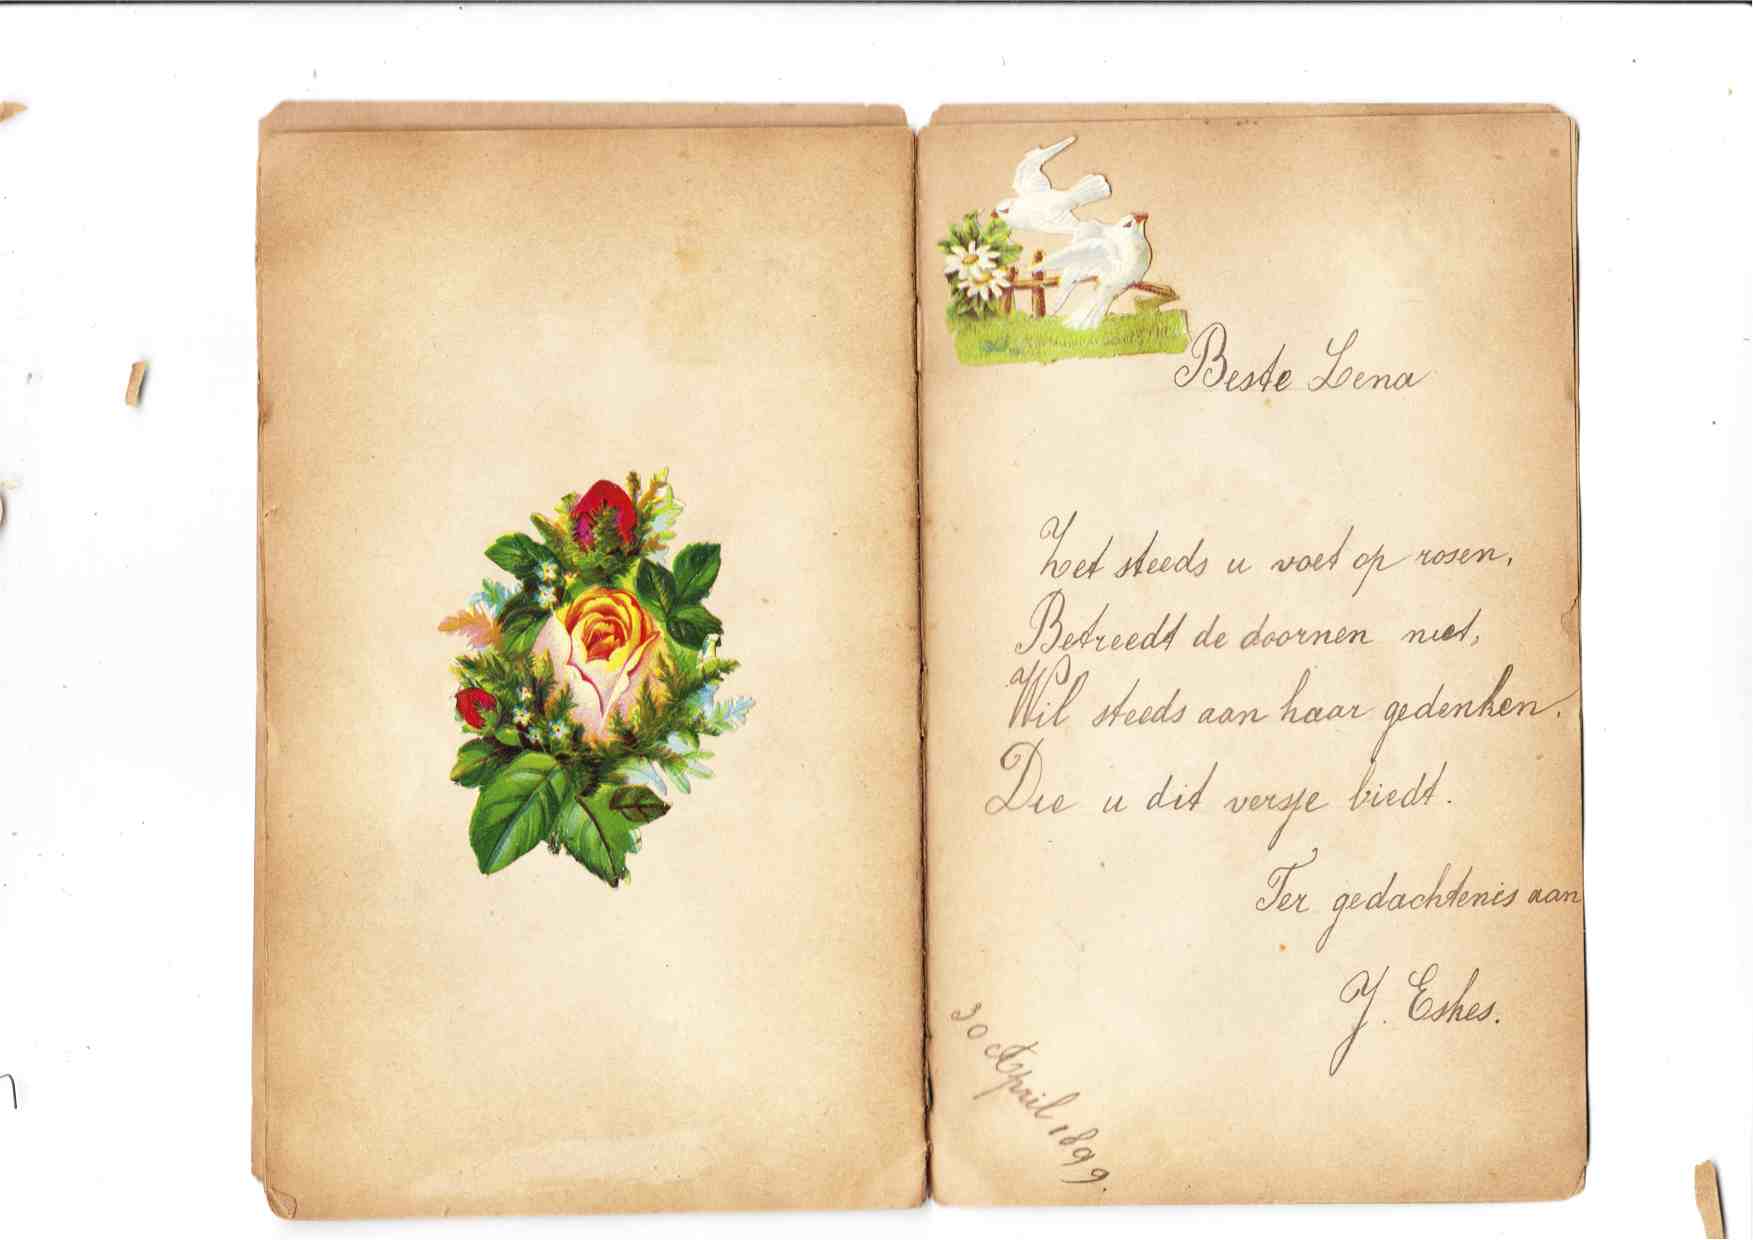 Beste Lena
Zet steeds u voet op rosen,
Betreedt de doornen niet,
Wil steeds aan haar gedenken.
Die u dit versje biedt.
Ter gedachtenis aan
J. Eskes.
30 April 1899.